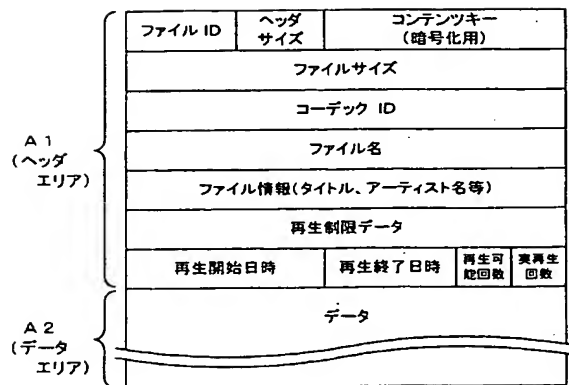 ファイル ID
ヘッダ
サイズ
コンテンツキー
(暗号化用)
ファイルサイズ
コーデック ID
ファイル名
ファイル情報(タイトル、アーティスト名等)
再生制限データ
再生開始日時
再生終了日時
再生可
能回数
実再生
回数
A 1
(ヘッダ
エリア)
データ
A 2
(データ
エリア)